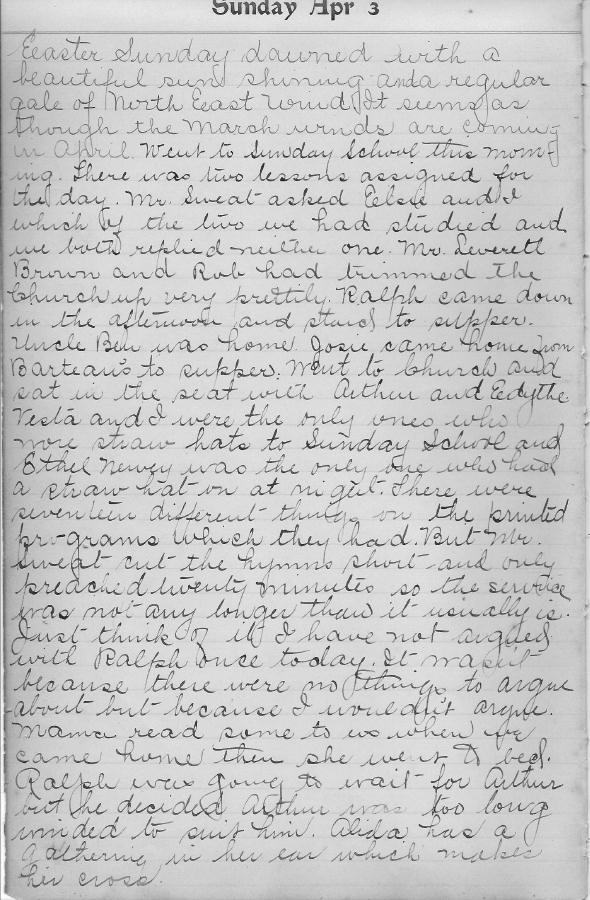 Sunday Apr 3
Eeaster Sunday dawned with a
beautiful sun shining and a regular
gale of North Eeast Wind. It seems as
though the March winds are coming
in April. Went to Sunday School this morn-
ing. There was two lessons assigned for
the day. Mr. Sweat asked Eelsie and I
which of the two we had studied and
we both replied neither one. Mr. Leverett
Brown and Rob had trimmed the
Church up very prettily. Ralph came down
in the afternoon and staid to supper.
Uncle Ben was home. Josie came home from
Barteau's to supper. Went to Church and
sat in the seat with Arthur and Eedythe.
Vesta and I were the only ones who
wore straw hats to Sunday School and
Ethel Newey was the only one who had
a straw hat on at night. There were
seventeen different things on the printed
programs which they had. But Mr.
Sweat cut the hymns short and only
preached twenty minutes so the service
was not any longer than it usually is.
Just think of it I have not argued
with Ralph once today. It wasn't
because there were no things to argue
about but because I wouldn't argue.
Mama read some to us when we
came home then she went to bed.
Ralph was going to wait for Arthur
but he decided Arthur was too long
winded to suit him. Alida has a
gathering in her ear which makes
her cross.